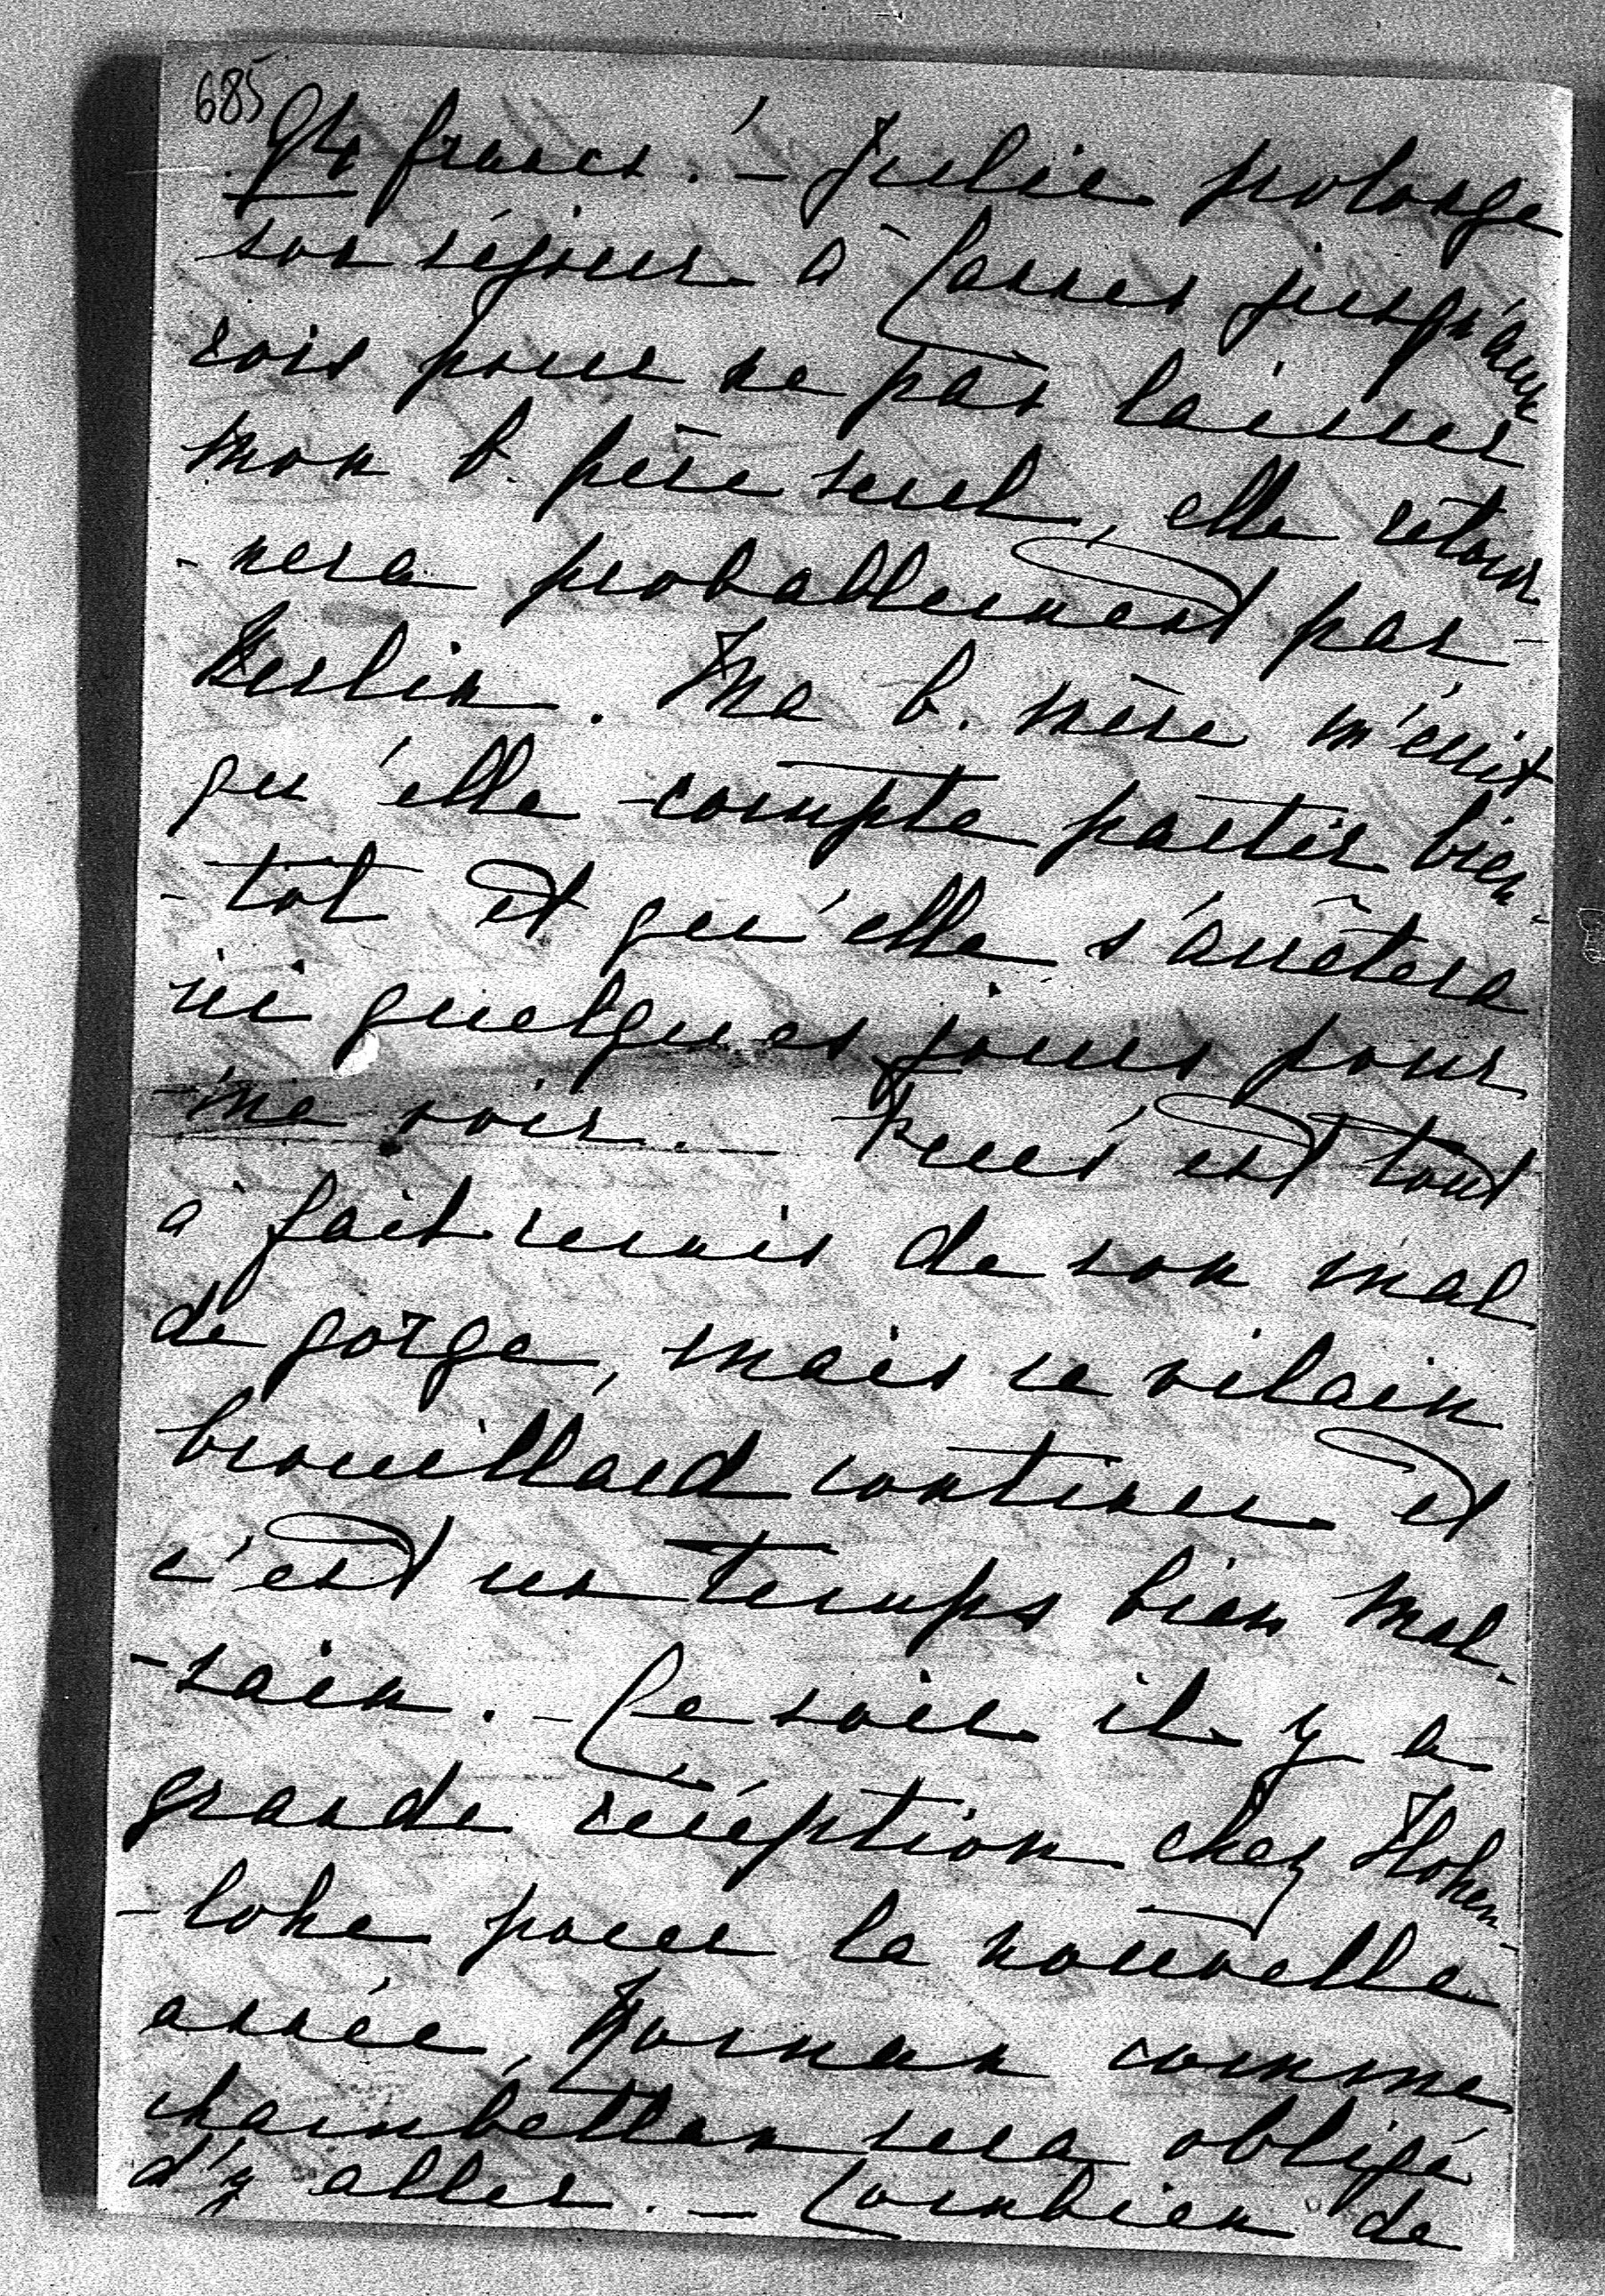 685
94 francs. — Julie prolonge
son séjour à Cannes jusqu'aux
rois pour ne pas laisser
mon b. père seul, elle retour
-nera probablement par
Berlin. Ma b. mère m'écrit
qu'elle compte partir bien-
-tôt et qu'elle s'arrêtera
ici quelques jours pour
me voir. — est tout
à fait remis de son mal
de gorge, mais ce vilain
brouillard continue et
c'est un temps bien mal-
-sain. — Ce soir il y a
grande réception chez Hohen-
-lohe pour la nouvelle
année, comme
chambellan sera obligé
d'y aller. — Combien de